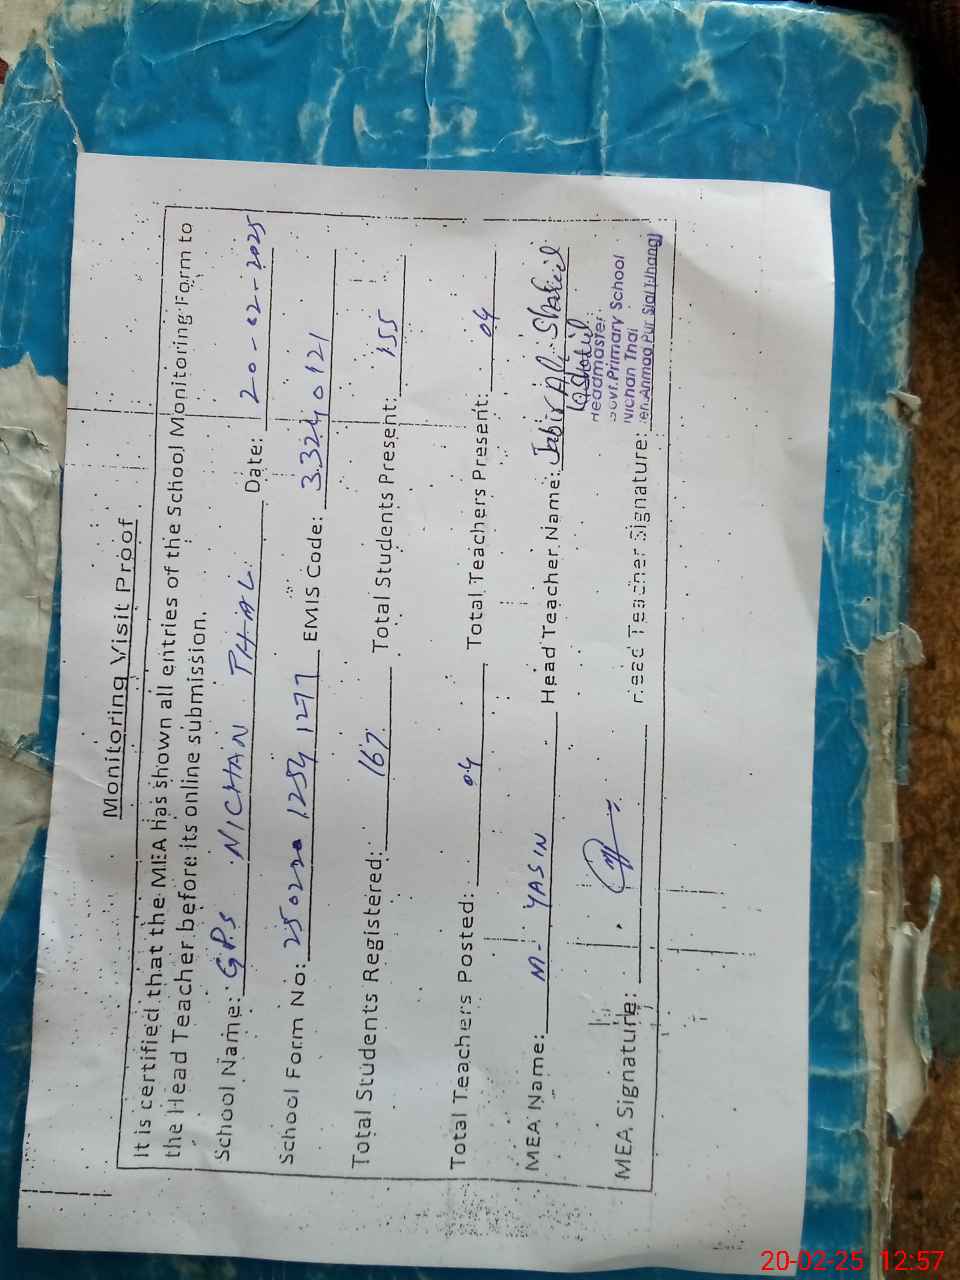 Monitoring Visit Proof
It is certified that the MEA has shown all entries of the School Monitoring Form to
the Head Teacher before its online submission.
School Name: GPS NICHAN THAL Date: 20-02-2025
School Form No: 250220 1254 1277 EMIS Code: 33240121
Total Students Registered: 167 Total Students Present: 155
Total Teachers Posted: 04 Total Teachers Present: 04
MEA Name: M- YASIN Head Teacher Name: Jabir Ali Shakil
MEA Signature: Head Teacher Signature:
Headmaster
Govt. Primary School
Nichan Thal
Ahmad Pur Sial (Jhang)
20-02-25 12:57